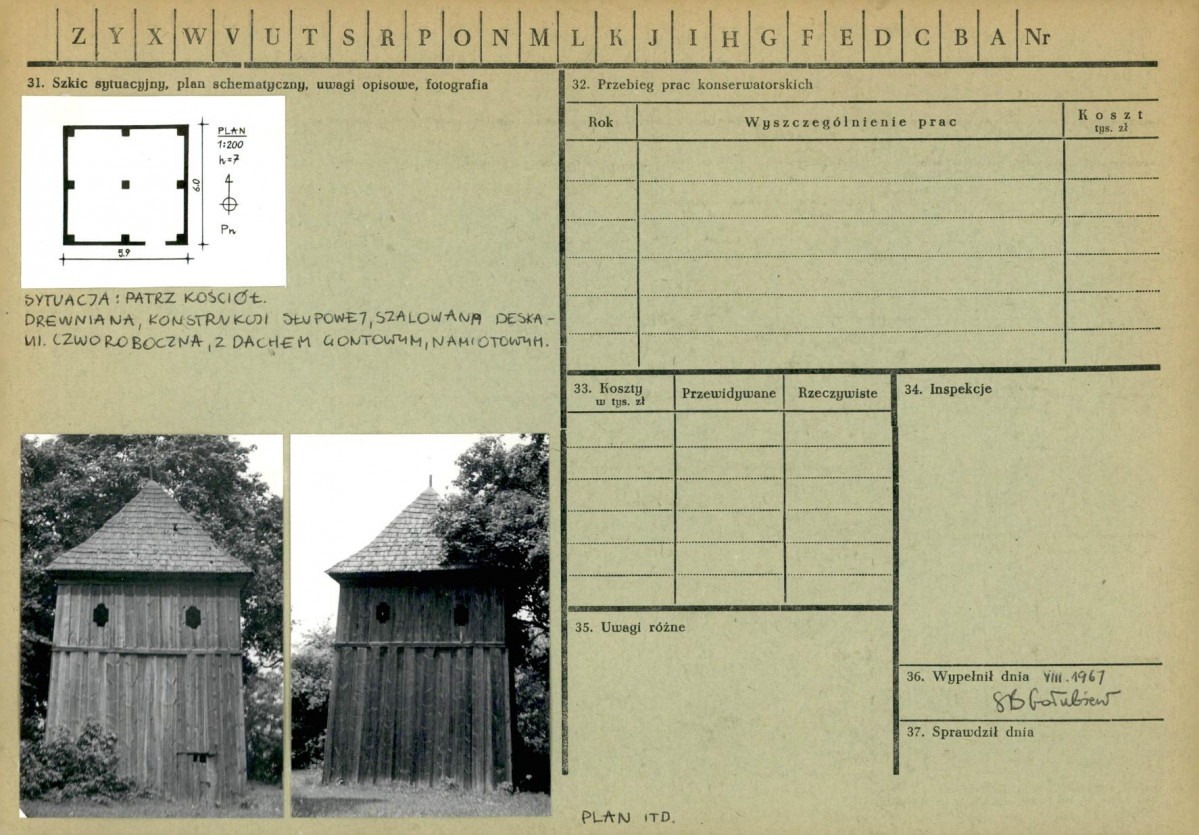 Z Y X W V U T S R P O N M L K J I H G F E D C B A Nr
31. Szkic sytuacyjny, plan schematyczny, uwagi opisowe, fotografia
PLAN
1:200
h=7
Pn
6.0
5.9
SYTUACJA: PATRZ KOŚCIÓŁ.
DREWNIANA, KONSTRUKCJI SŁUPOWEJ, SZALOWANA DESKA-
MI. CZWOROBOCZNA, Z DACHEM GONTOWYM, NAMIOTOWYM.
32. Przebieg prac konserwatorskich
Rok Wyszczególnienie prac Koszt
tys. zł
33. Koszty Przewidywane Rzeczywiste
w tys. zł
34. Inspekcje
35. Uwagi różne
36. Wypełnił dnia VIII.1967
37. Sprawdził dnia
PLAN ITD.